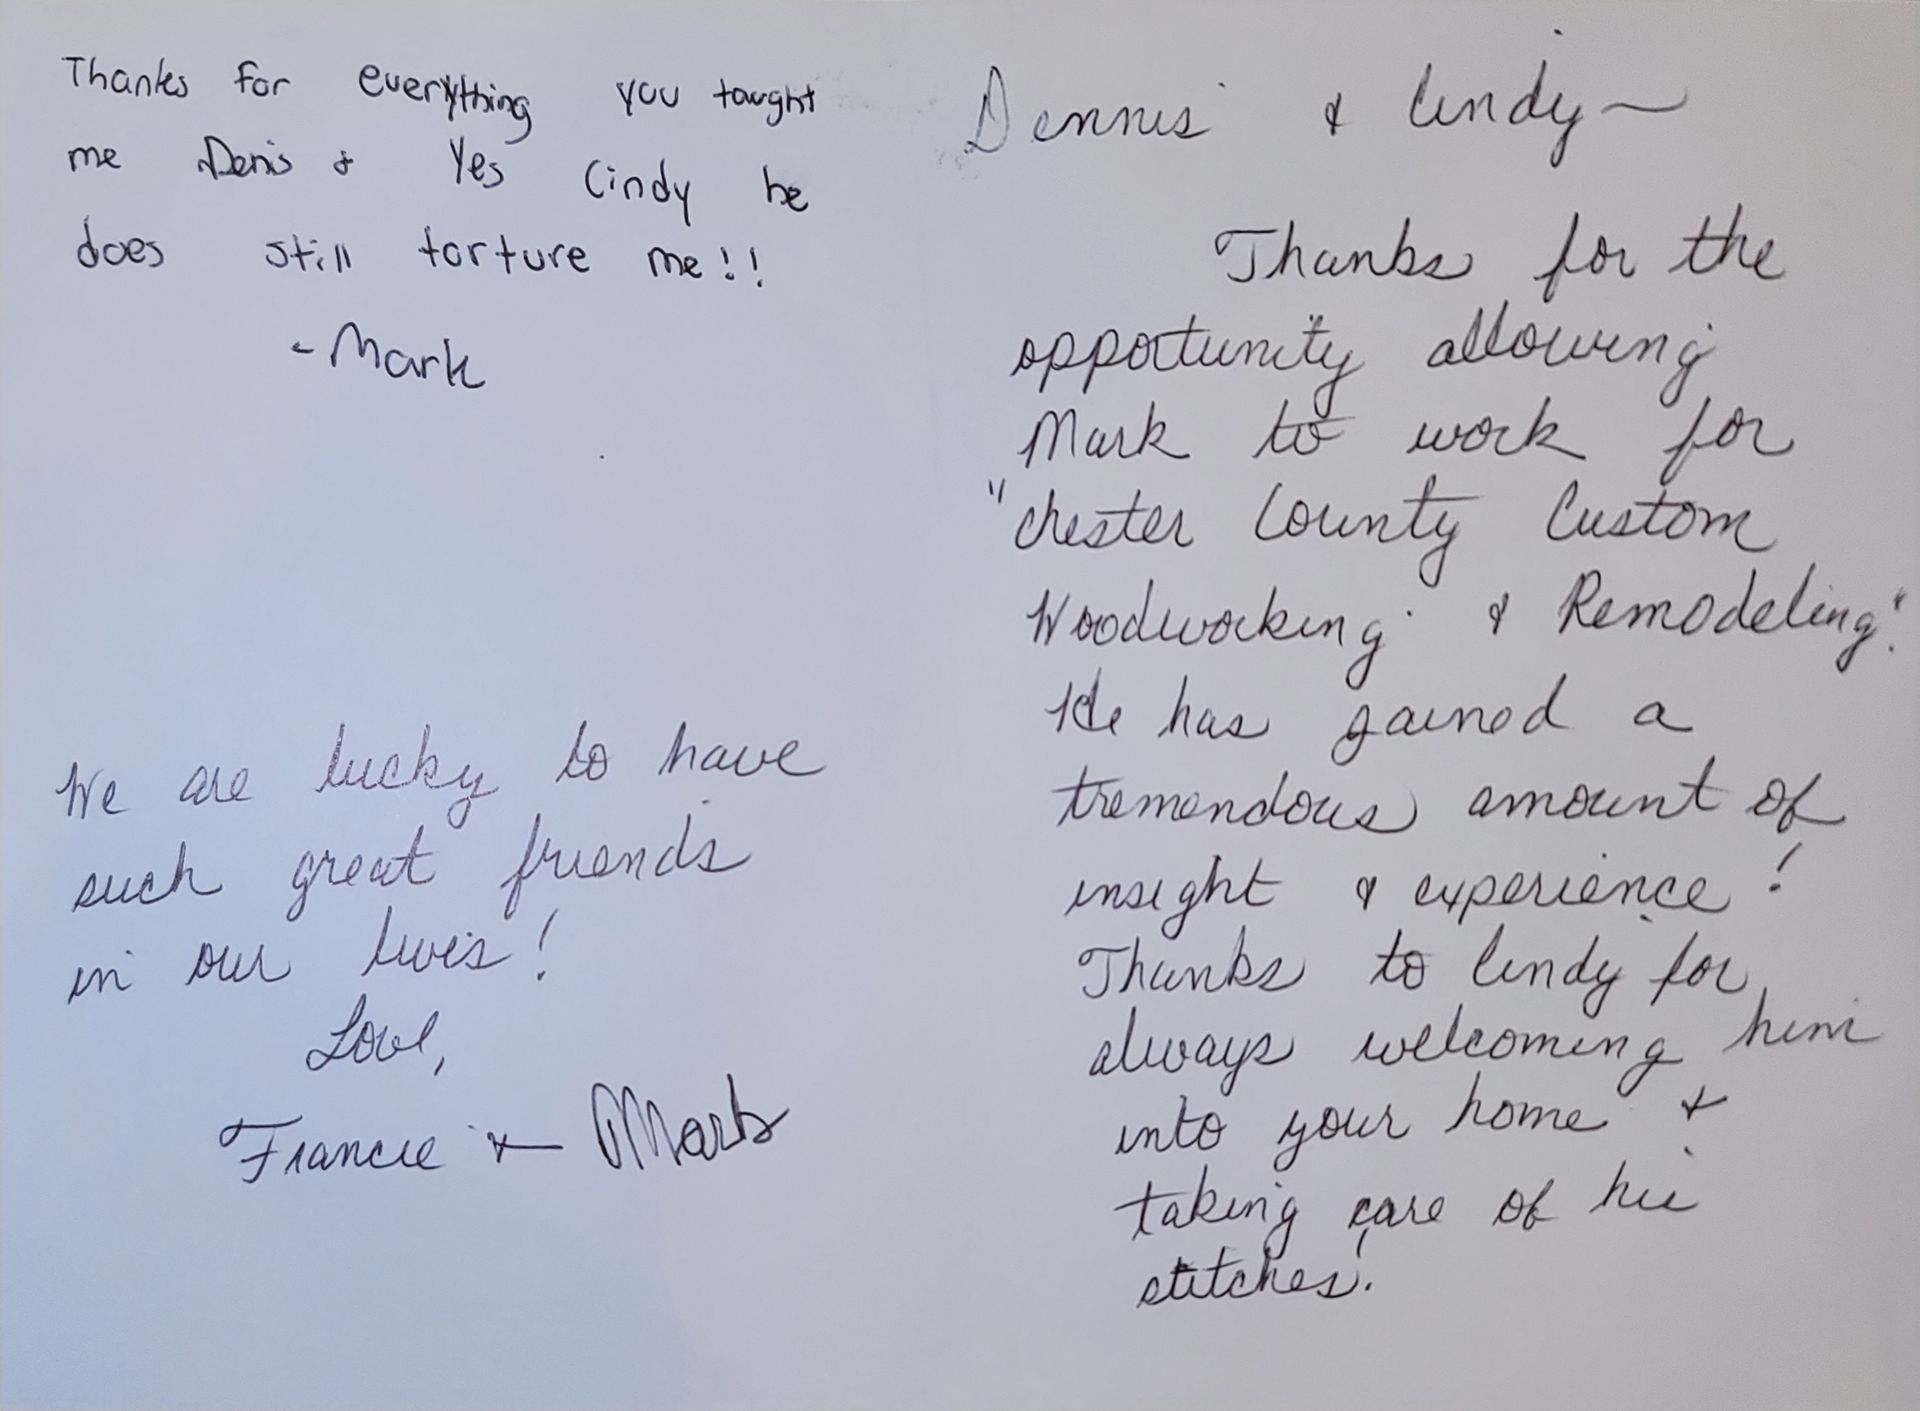 Thanks for everything you taught
me Denis & Yes Cindy he
does still torture me!!
- Mark
We are lucky to have
such great friends
in our lives!
Love,
Francie & Mark
Dennis & Cindy ~
Thanks for the
opportunity allowing
Mark to work for
"Chester County Custom
Woodworking & Remodeling".
He has gained a
tremendous amount of
insight & experience!
Thanks to Cindy for
always welcoming him
into your home &
taking care of his
stitches!